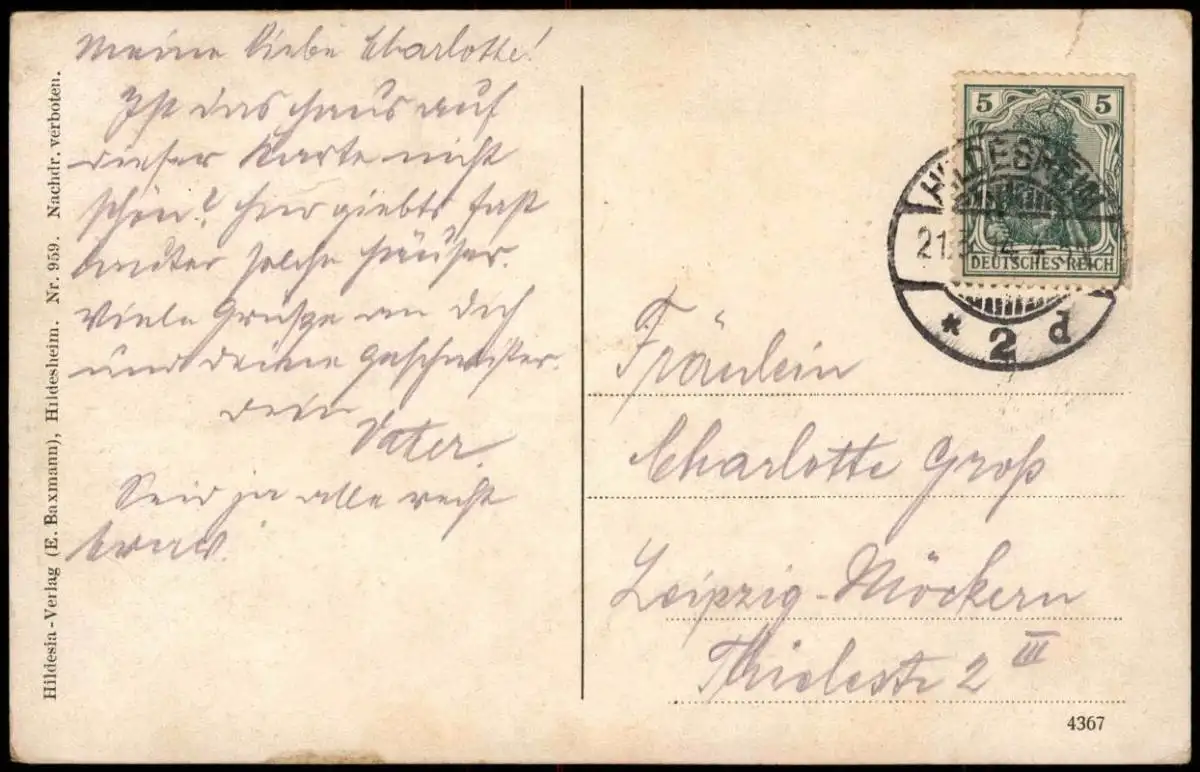 Meine liebe Charlotte!
Ist das Haus auf
dieser Karte nicht
schön? Hier giebts fast
lauter solche Häuser.
Viele Grüße an Dich
und deine Geschwister.
Dein
Vater.
Seid ja alle recht
brav!
Hildesia-Verlag (E. Baxmann), Hildesheim. Nr. 959. Nachdr. verboten.
5 5
DEUTSCHES REICH
HILDESHEIM
21.
* 2 d
Fräulein
Charlotte Groß
Leipzig-Möckern
Thielestr 2 III
4367